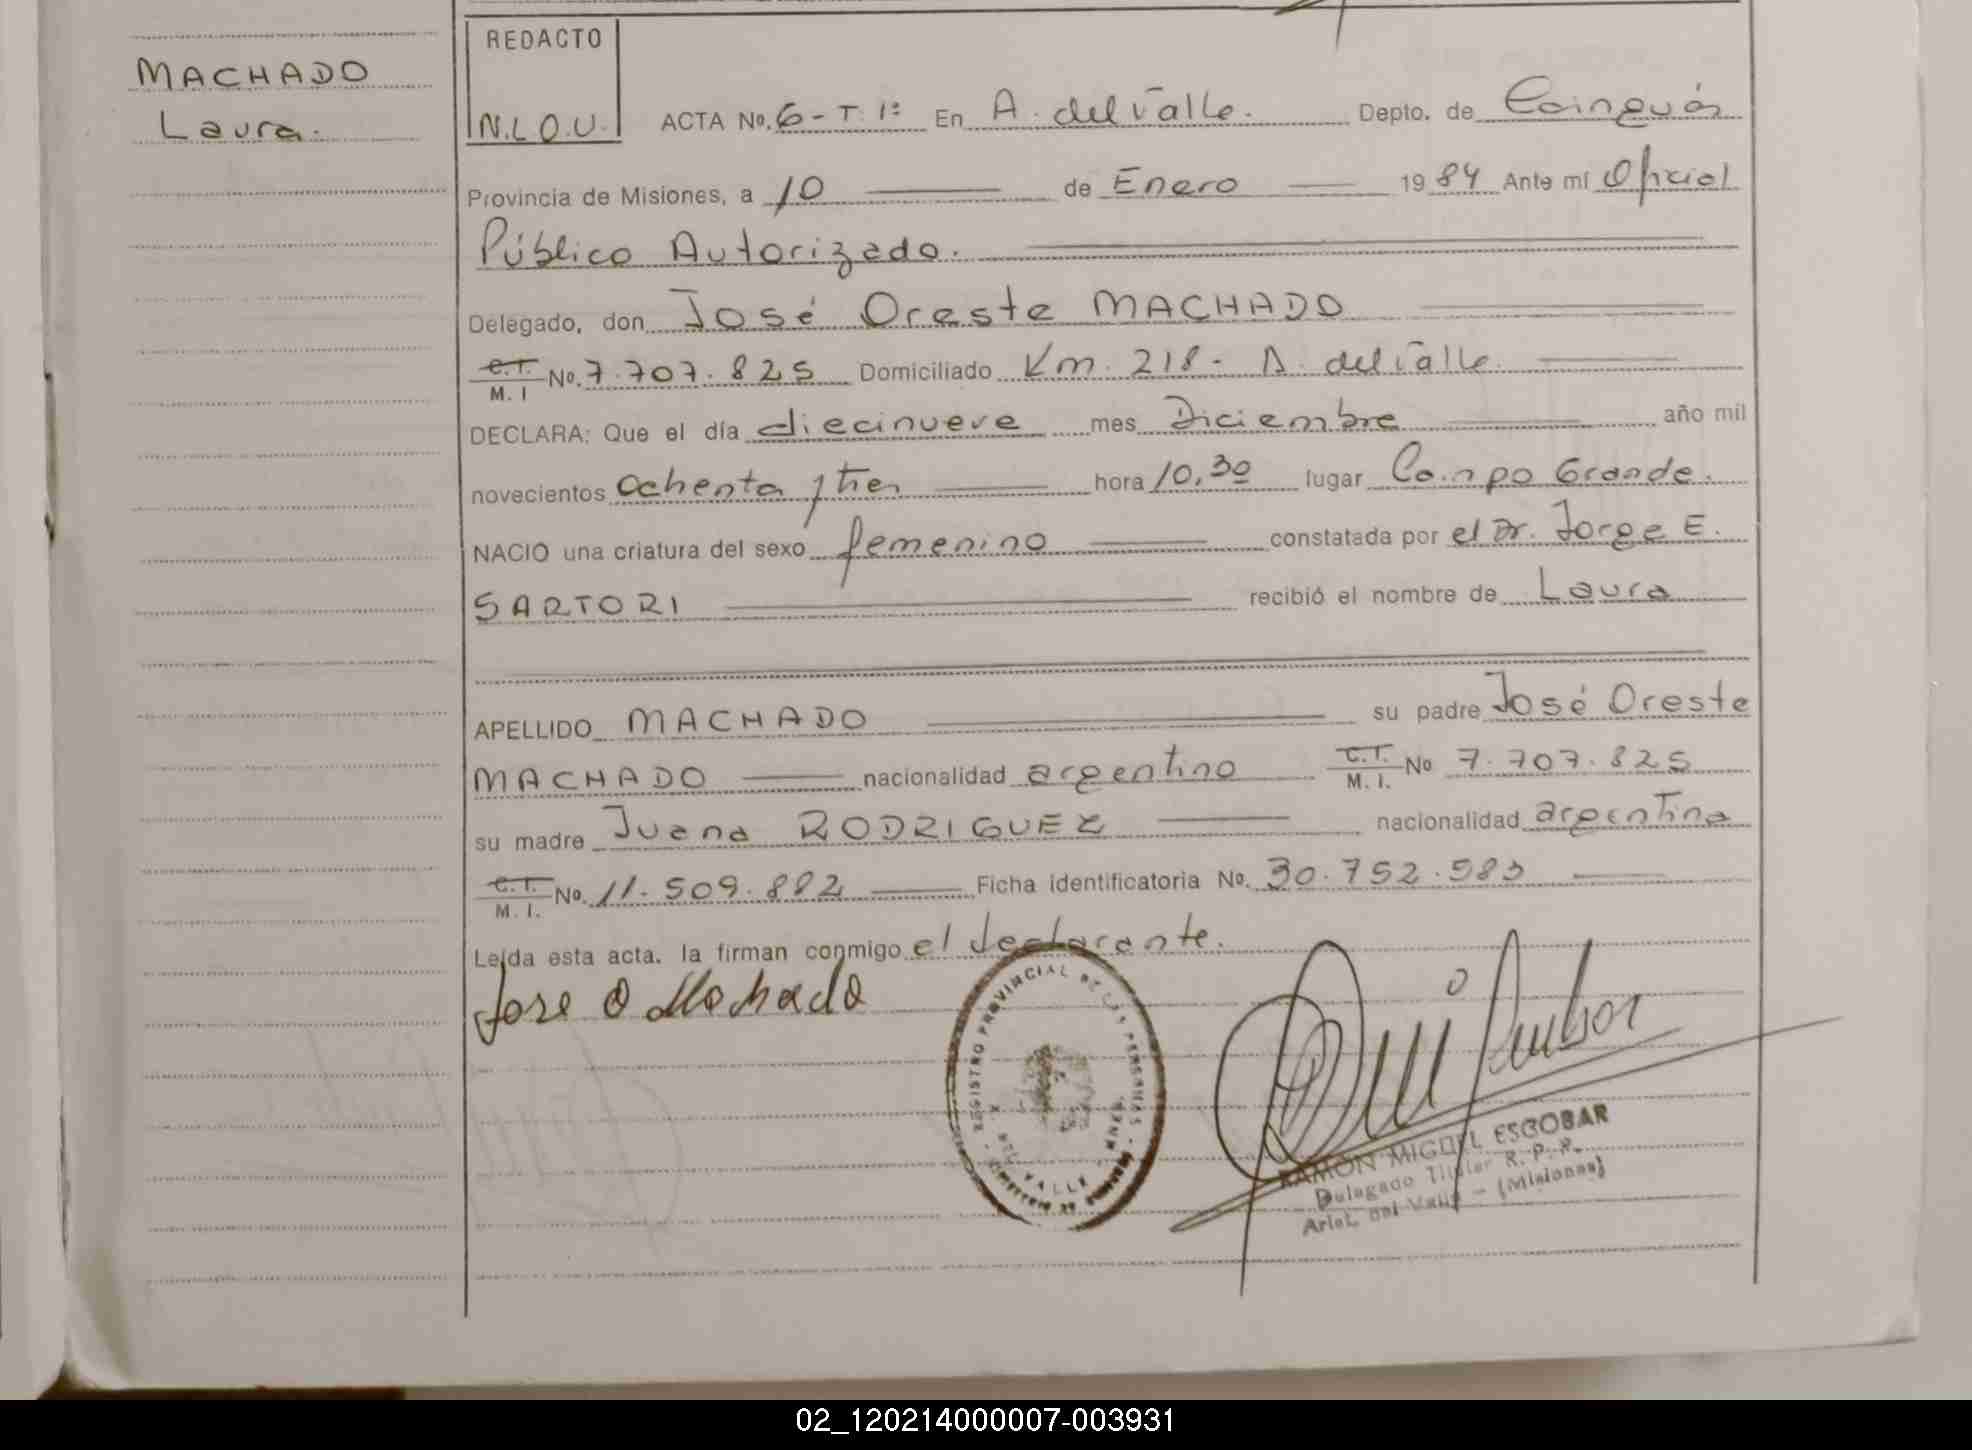 MACHADO
Laura.
REDACTO
N.L.O.U.
ACTA No. 6-T. 1º En A. del Valle. Depto. de Cainguás
Provincia de Misiones, a 10 de Enero 1984 Ante mí Oficial
Público Autorizado.
Delegado, don José Oreste MACHADO
C.I. M. I No. 7.707.825 Domiciliado Km. 218- A. del Valle.
DECLARA: Que el día diecinueve mes Diciembre año mil
novecientos ochenta y tres hora 10,30 lugar Campo Grande.
NACIO una criatura del sexo femenino constatada por el Dr. Jorge E.
SARTORI recibió el nombre de Laura
APELLIDO MACHADO su padre José Oreste
MACHADO nacionalidad argentino C.I. M. I. No 7.707.825
su madre Juana RODRIGUEZ nacionalidad argentina
C.I. M. I. No. 11.509.882 Ficha identificatoria No. 30.752.583
Leída esta acta, la firman conmigo el declarante.
Jose O Machado
REGISTRO PROVINCIAL DE LAS PERSONAS
DEL VALLE
RAMON MIGUEL ESCOBAR
Delegado Titular R. P. P.
Arist. del Valle - (Misiones)
02_120214000007-003931